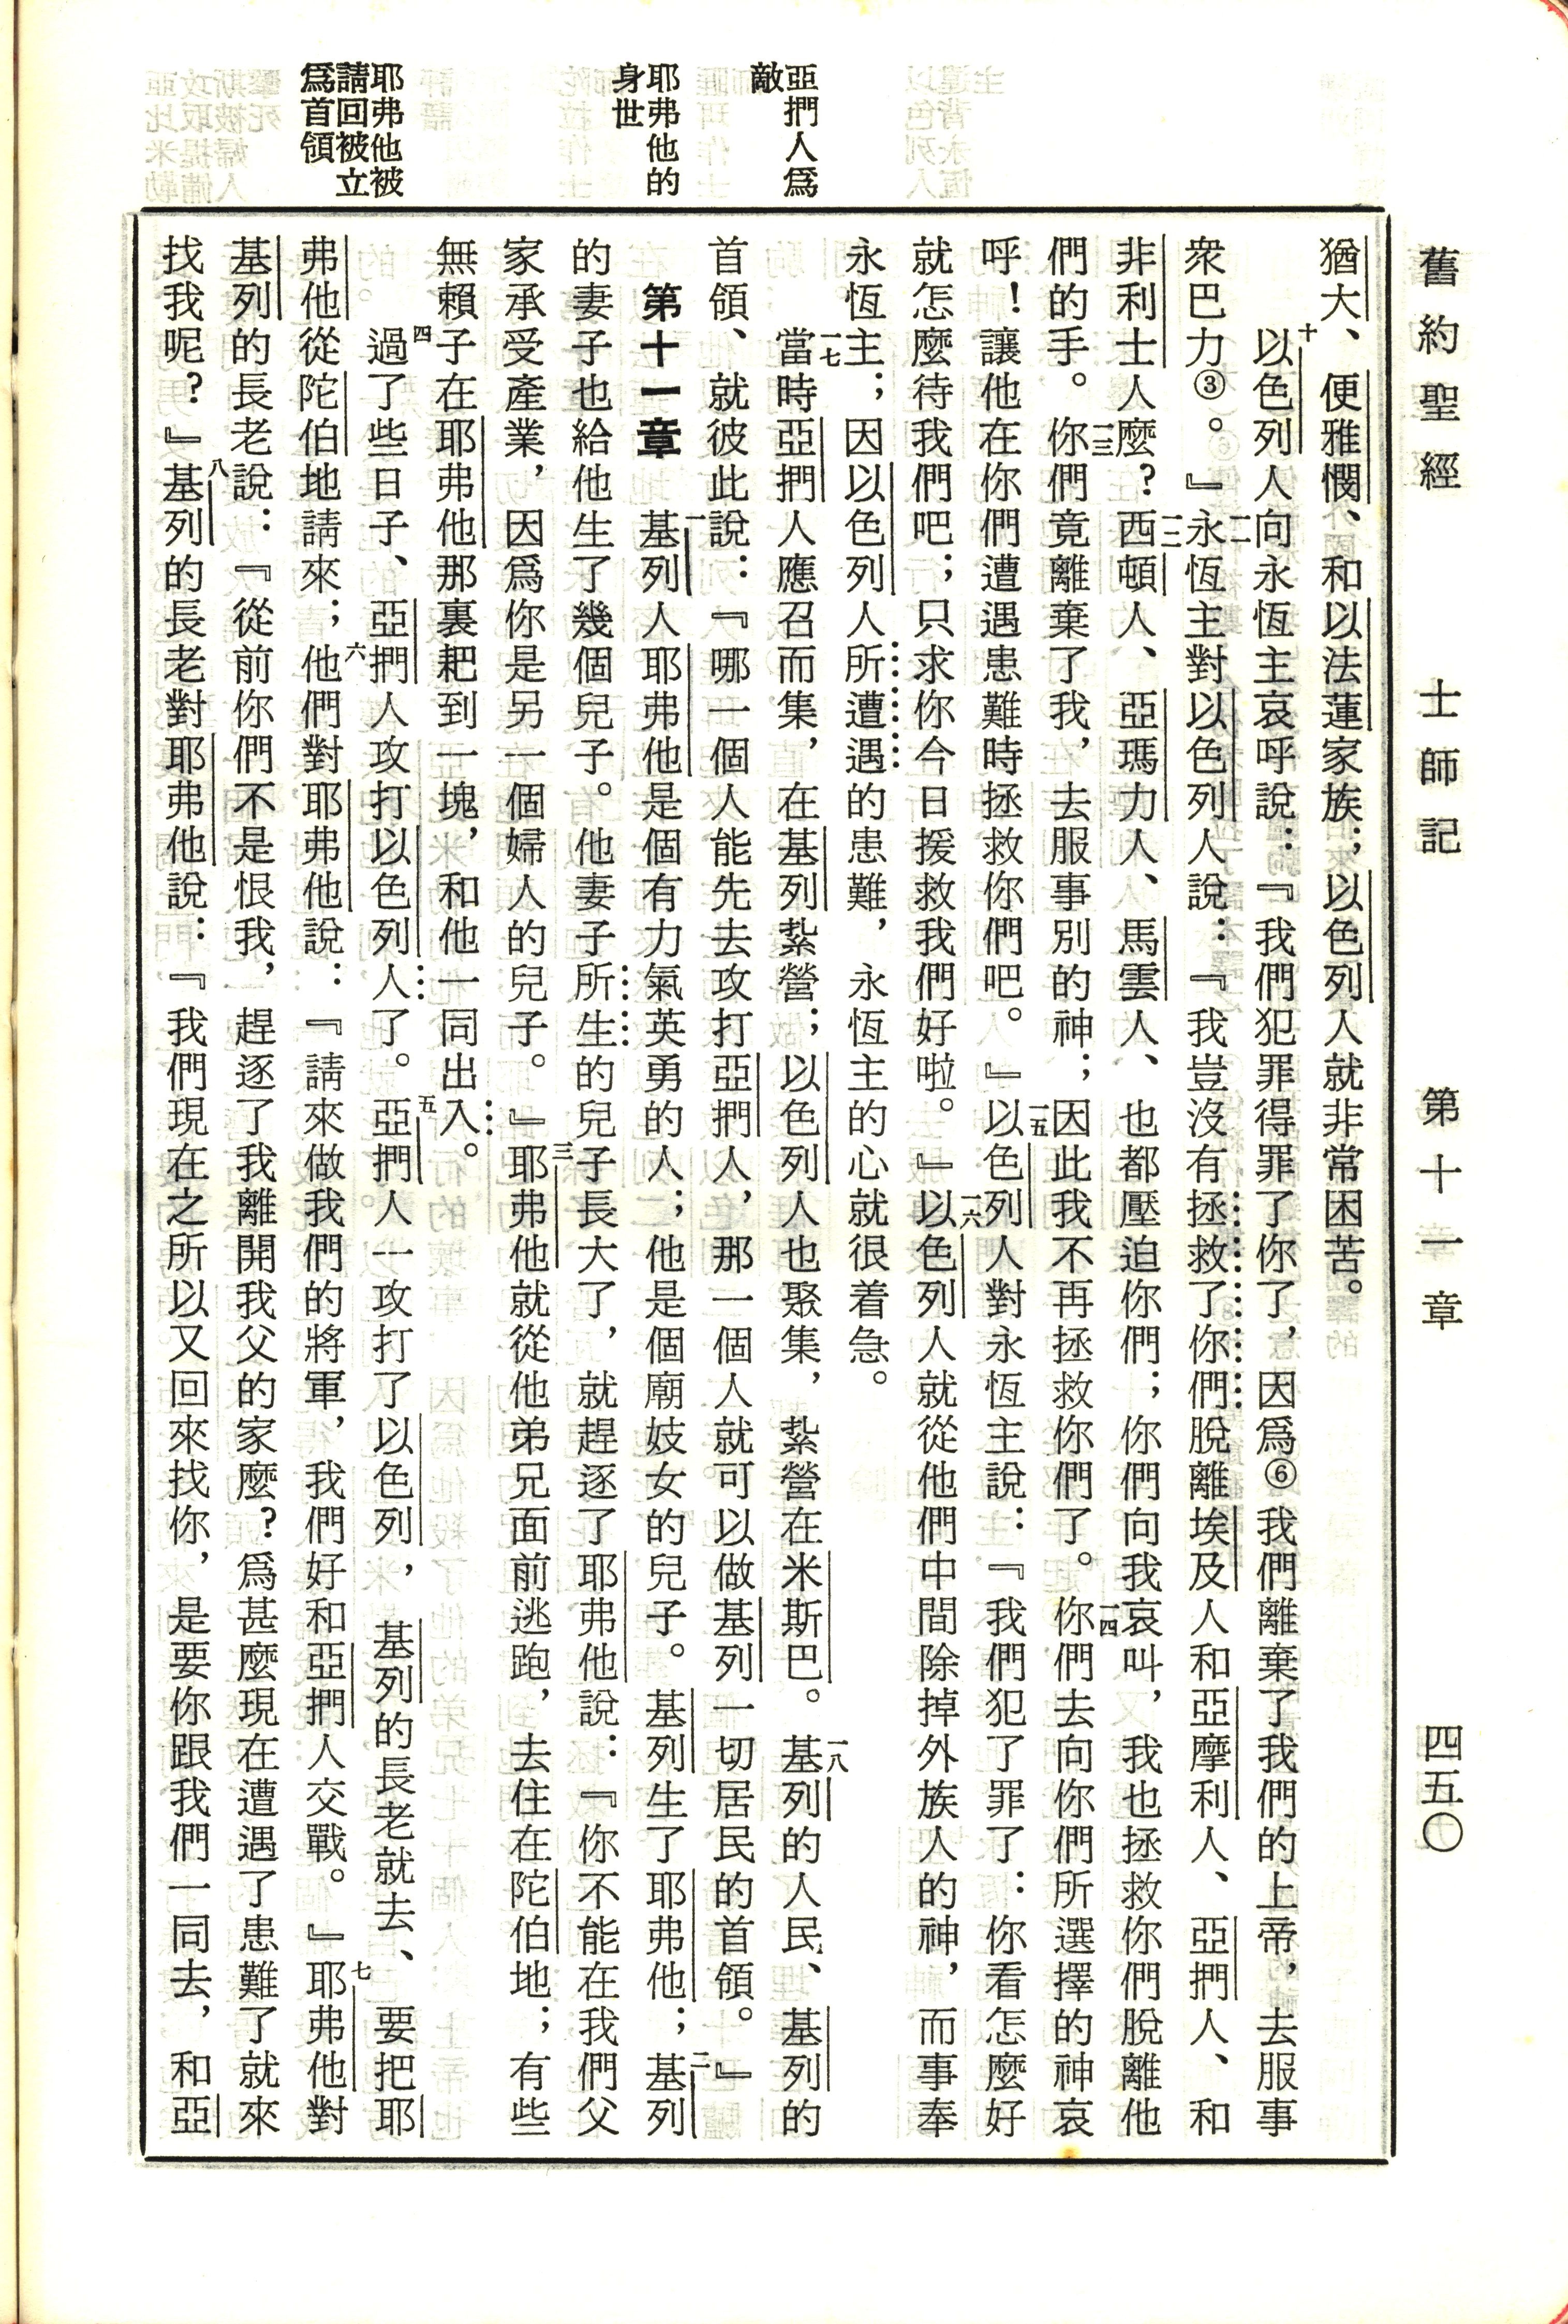 舊約聖經　士師記　第十一章　四五〇
亞捫人為
敵
耶弗他的
身世
耶弗他被
請回被立
為首領
猶大、便雅憫、和以法蓮家族；以色列人就非常困苦。
十以色列人向永恆主哀呼說：『我們犯罪得罪了你了，因為⑥我們離棄了我們的上帝，去服事
眾巴力③。』一一永恆主對以色列人說：『我豈沒有拯救了你們脫離埃及人和亞摩利人、亞捫人、和
非利士人麼？一二西頓人、亞瑪力人、馬雲人、也都壓迫你們；你們向我哀叫，我也拯救你們脫離他
們的手。一三你們竟離棄了我，去服事別的神；因此我不再拯救你們了。一四你們去向你們所選擇的神哀
呼！讓他在你們遭遇患難時拯救你們吧。』一五以色列人對永恆主說：『我們犯了罪了：你看怎麼好
就怎麼待我們吧；只求你今日援救我們好啦。』一六以色列人就從他們中間除掉外族人的神，而事奉
永恆主；因以色列人所遭遇的患難，永恆主的心就很着急。
一七當時亞捫人應召而集，在基列紮營；以色列人也聚集，紮營在米斯巴。一八基列的人民、基列的
首領、就彼此說：『哪一個人能先去攻打亞捫人，那一個人就可以做基列一切居民的首領。』
第十一章　一基列人耶弗他是個有力氣英勇的人；他是個廟妓女的兒子。基列生了耶弗他；二基列
的妻子也給他生了幾個兒子。他妻子所生的兒子長大了，就趕逐了耶弗他說：『你不能在我們父
家承受產業，因為你是另一個婦人的兒子。』三耶弗他就從他弟兄面前逃跑，去住在陀伯地；有些
無賴子在耶弗他那裏耙到一塊，和他一同出入。
四過了些日子、亞捫人攻打以色列人了。五亞捫人一攻打了以色列，基列的長老就去、要把耶
弗他從陀伯地請來；六他們對耶弗他說：『請來做我們的將軍，我們好和亞捫人交戰。』七耶弗他對
基列的長老說：『從前你們不是恨我，趕逐了我離開我父的家麼？為甚麼現在遭遇了患難了就來
找我呢？』八基列的長老對耶弗他說：『我們現在之所以又回來找你，是要你跟我們一同去，和亞